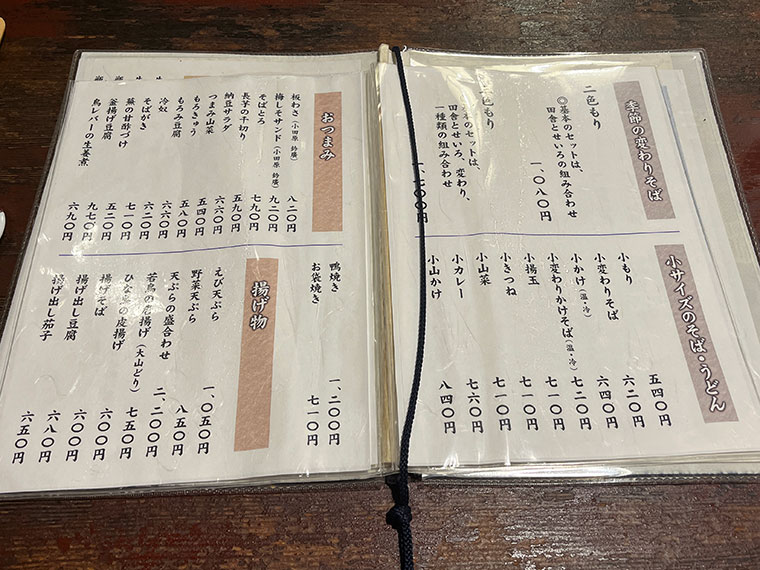 季節の変わりそば
二色もり
◎基本のセットは、
田舎とせいろの組み合わせ
一、〇八〇円
色もり
基本のセットは、
田舎とせいろ、変わり、
一種類の組み合わせ
一、七〇〇円
小サイズのそば・うどん
小もり 五四〇円
小変わりそば 六二〇円
小かけ(温・冷) 六四〇円
小変わりかけそば(温・冷) 七二〇円
小揚玉 七一〇円
小きつね 七一〇円
小山菜 七一〇円
小カレー 七六〇円
小山かけ 八四〇円
おつまみ
板わさ(小田原 鈴廣) 八二〇円
梅しそサンド(小田原 鈴廣) 九二〇円
そばとろ 七九〇円
長芋の千切り 五九〇円
納豆サラダ 六六〇円
つまみ山菜 五四〇円
もろきゅう 五八〇円
もろみ豆腐 六六〇円
冷奴 六二〇円
そばがき 七一〇円
蕪の甘酢づけ 五二〇円
釜揚げ豆腐 九七〇円
鳥レバーの生姜煮 六九〇円
鴨焼き 一、二〇〇円
お袋焼き 七一〇円
揚げ物
えび天ぷら 一、〇五〇円
野菜天ぷら 八五〇円
天ぷらの盛合わせ 二、二〇〇円
若鳥の唐揚げ(大山どり) 七五〇円
ひな鳥の皮揚げ 六〇〇円
揚げそば 六〇〇円
揚げ出し豆腐 六八〇円
揚げ出し茄子 六五〇円